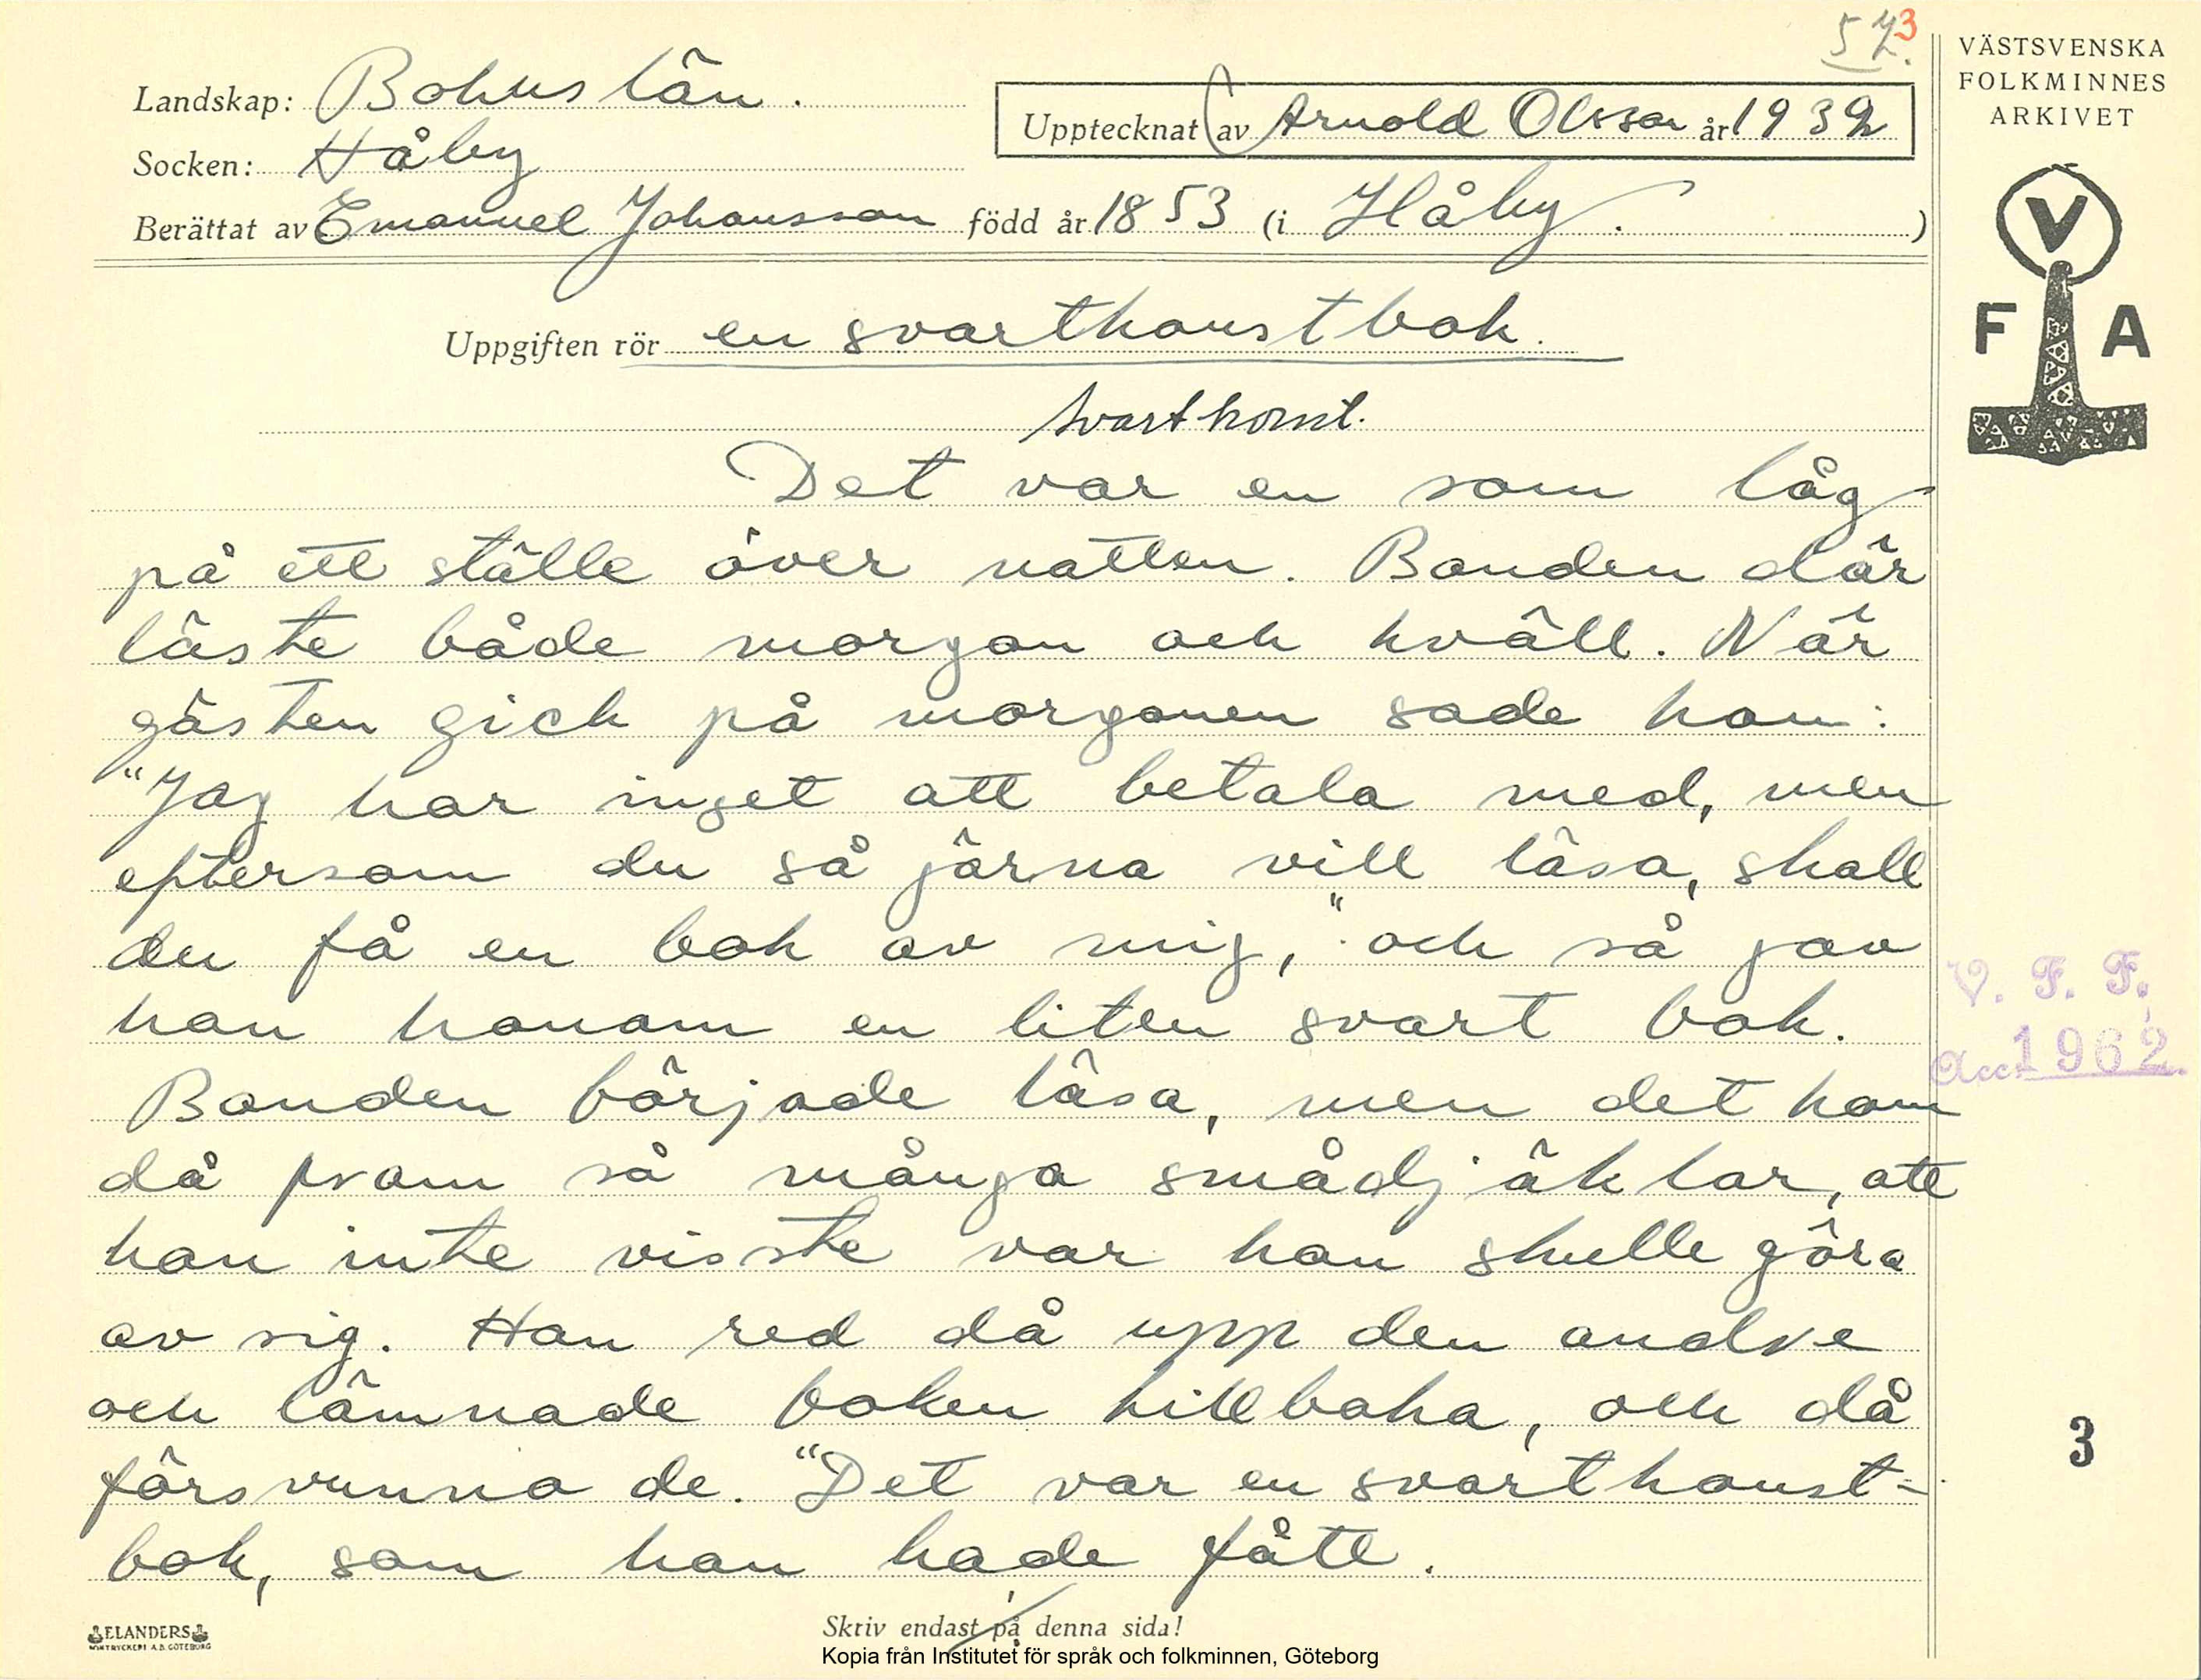 573.
VÄSTSVENSKA
FOLKMINNES
ARKIVET
Landskap: Bohuslän.
Upptecknat av Arnold Olsson år 1932
Socken: Håby
Berättat av Emanuel Johansson född år 1853 (i Håby.)
V
F A
Uppgiften rör en svartkonstbok.
Svartkonst.
Det var en som låg
på ett ställe över natten. Bonden där
läste både morgon och kväll. När
gästen gick på morgonen sade han:
"Jag har inget att betala med, men
eftersom du så järna vill läsa, skall
du få en bok av mig," och så gav
han honom en liten svart bok.
Bonden började läsa, men det kom
då fram så många smådjäklar, att
han inte visste var han skulle göra
av sig. Han red då upp den andre
och lämnade boken tillbaka, och då
försvunno de. "Det var en svartkonst-
bok, som han hade fått.
V. F. F.
Acc. 1962.
3
ELANDERS
BOKTRYCKERI A.B. GÖTEBORG
Skriv endast på denna sida!
Kopia från Institutet för språk och folkminnen, Göteborg